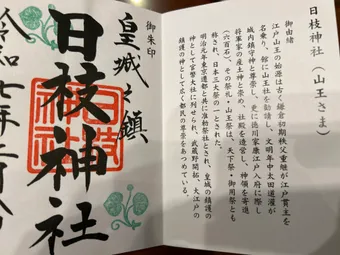 日枝神社(山王さま)
御由緒
江戸山王の始源は古く鎌倉初期秩父重継が江戸貫主を
名乗り、館に山王社を勧請し、文明年中太田道灌が
城内鎮守神と尊崇し、更に徳川家康江戸入府に際し
将軍家の産土神と崇め、社殿を造営し、神領を寄進
(六百石)、その祭礼・山王祭は、天下祭・御用祭とも
称され、日本三大祭の一とされた。
明治元年東京遷都と共に准勅祭社とされ、皇城の鎮護の
神として官幣大社に列せられ、武蔵野開拓、大江戸の
鎮護の神として広く都民の尊崇をあつめている。
御朱印
皇城之鎮
日枝神社
日枝神社
令和七年二